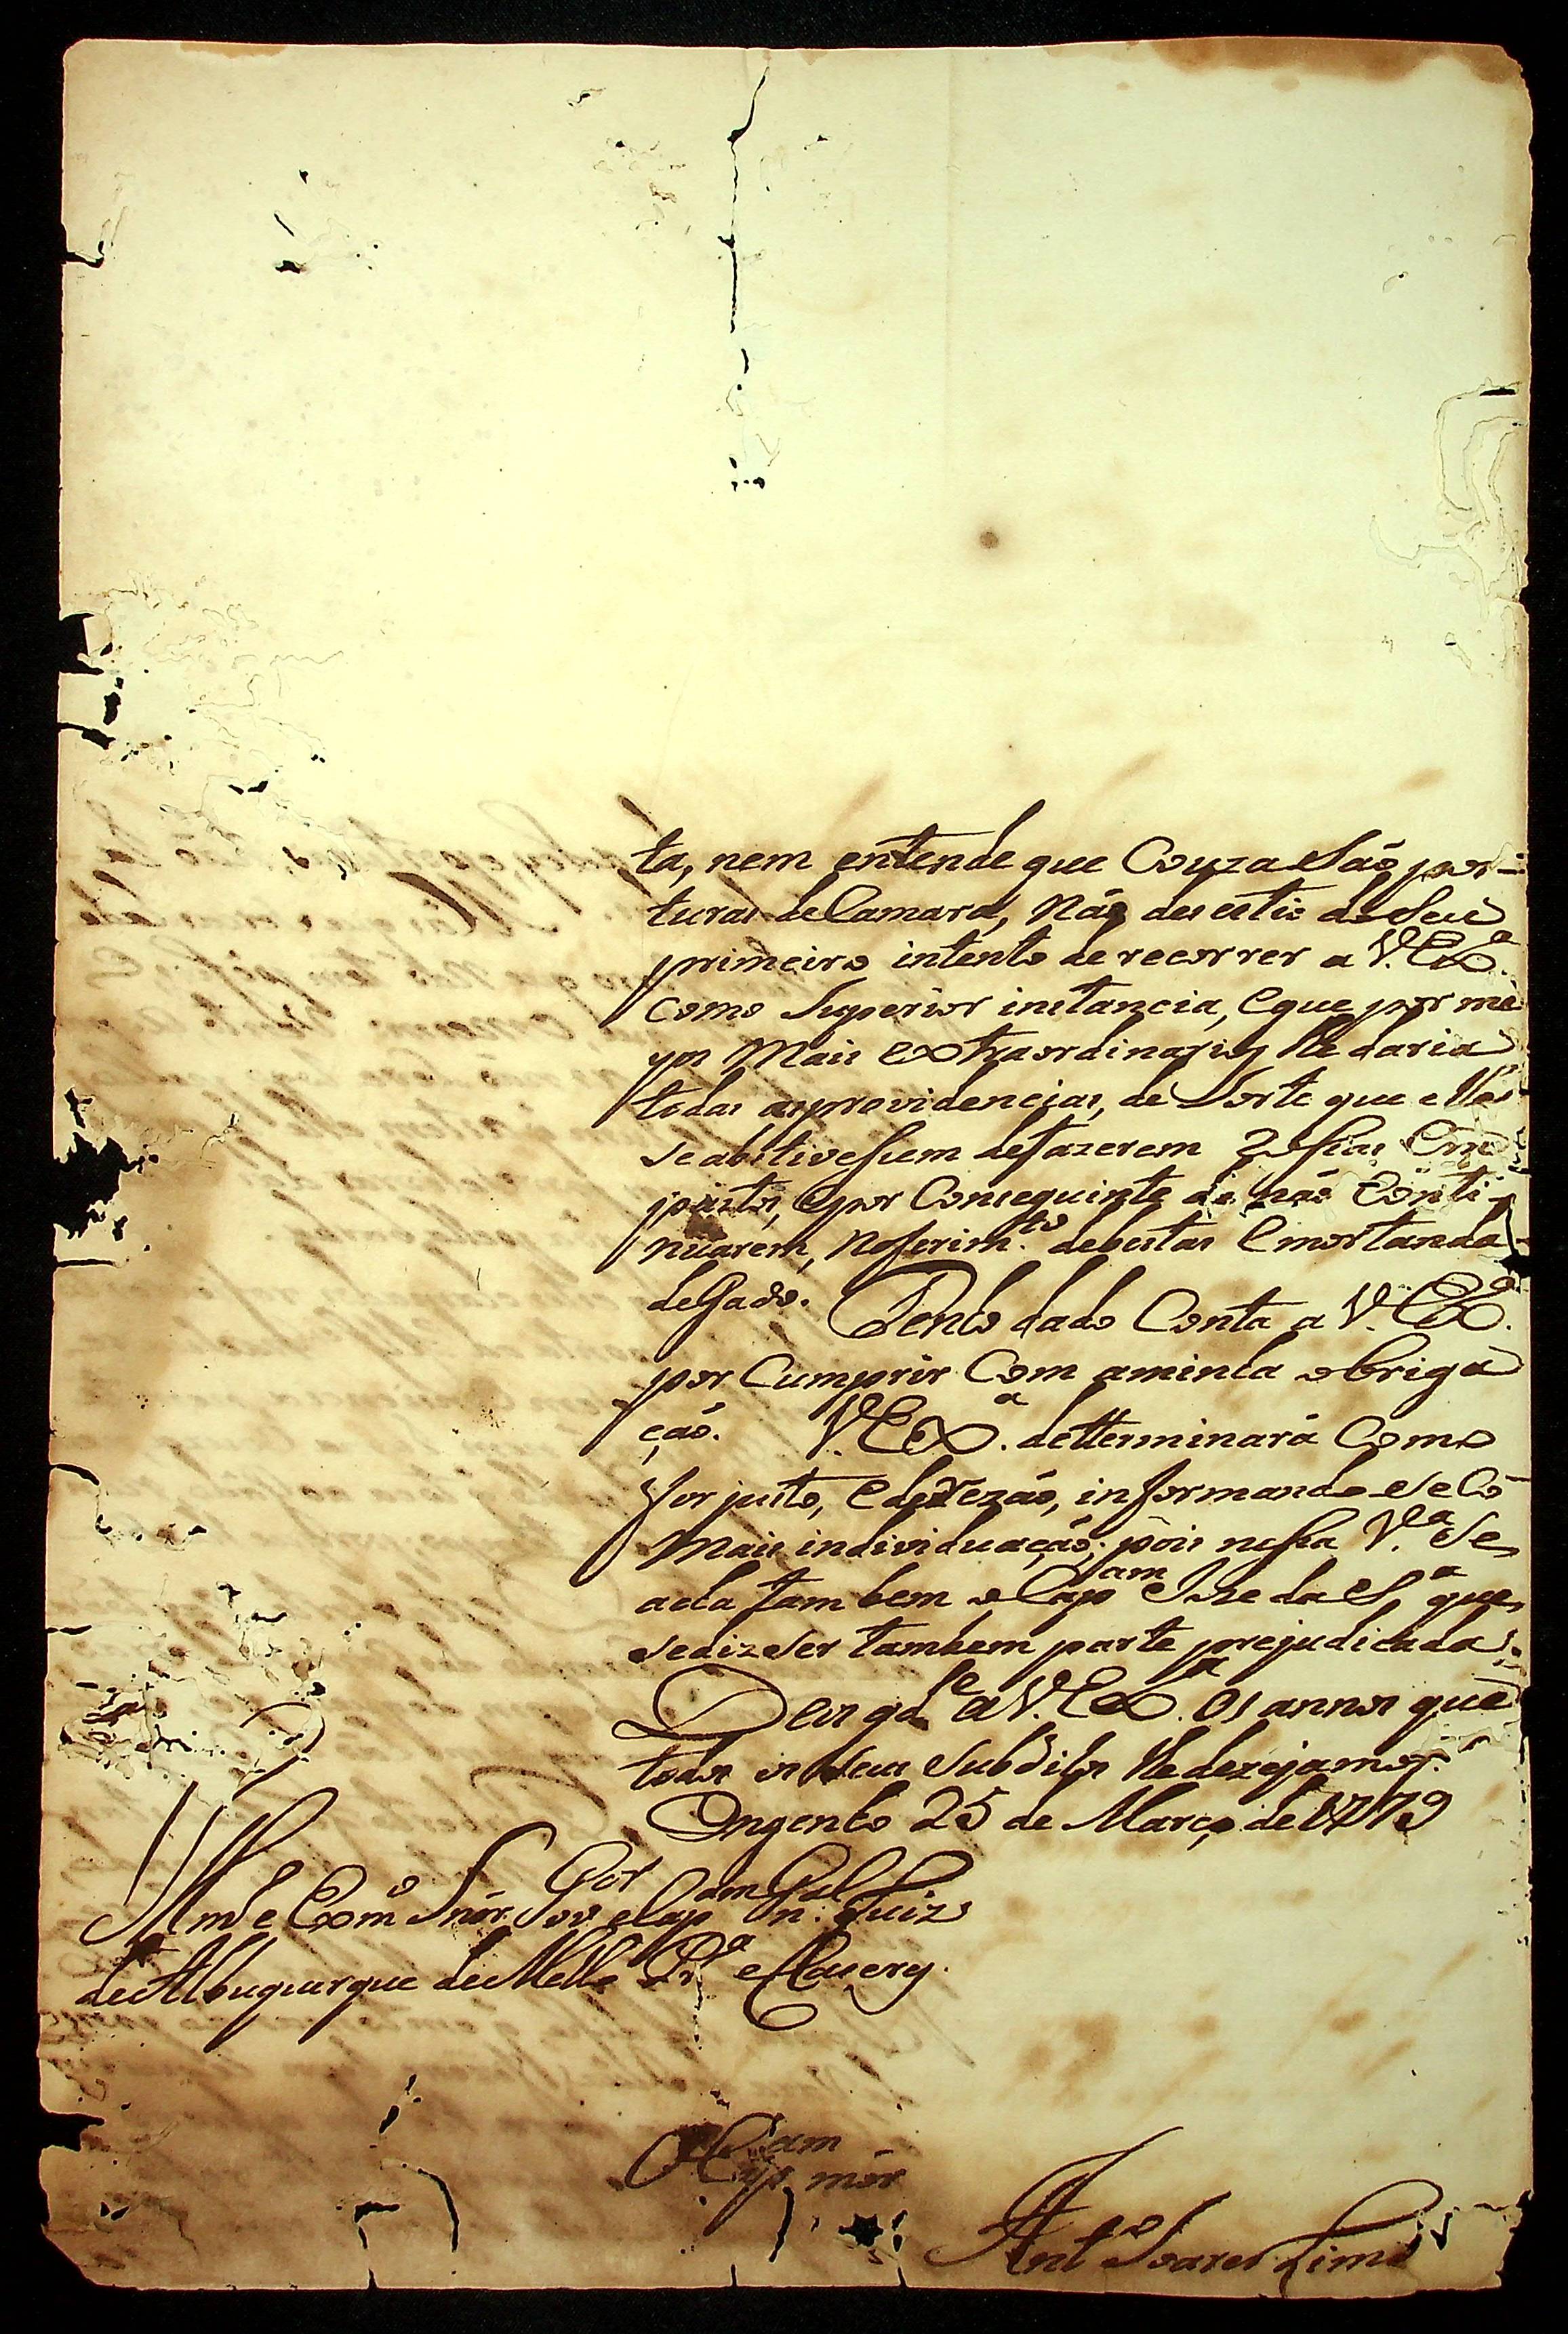 ta, nem entende que Couza São pos-
turas de Camara, Não desestio do Seu
primeiro intento de recorrer a V. Exª.
como Superior instancia, e que por me
yos Mais extraordinarios lhe daria
todas as providencias, de Sorte que elles
Se abstivessem de fazerem
postos, e por Conseguinte de não Conti-
nuarem, no ferim.to debestas e mortanda
de Gado. Tenho dado Conta a V. Exª.
por Cumprir Com aminha obriga
ção. V. Exª. detterminará Como
for justo, e de rezão, informando Se Cõ
Mais individuação; pois nessa V.ª Se
acha tambem o Cap.am Joze da Sª que
Se diz Ser tambem parte prejudicada.
Deos gd.e a V. Exª. os annos que
todos os Seus Subditos lhe dezejamos.
Ongenho 25 de Março de 1779
Illmo e Exmº Snõr. Gov.or e Cap.am Gn.al Luiz
de Albuquerque de Mello Prª e Caceres.
O Cap.am mór
Antº Soares Lima